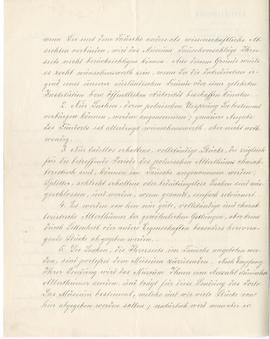 wenn Sie mit dem Tausche andere als wissenschaftliche Ab-
sichten verbinden, wird das Museum Tauschvorschläge Ihrer-
seits nicht berücksichtigen können. Aus diesem Grunde würde
es recht wünschenswerth sein, wenn Sie die
Institution bzw öffentlichen
2. Nur Sachen, deren polnischen Ursprung Sie bestimmt
verbürgen können, werden angenommen; genaue Angabe
des Fundorts ist allerdings wünschenswerth aber nicht noth
wendig.
3. Nur tadellos erhaltene, vollständige Stücke, die zugleich
für die betreffende Periode des polnischen Alterthums charak-
teristisch sind, können im Tausche angenommen werden;
Splitter, schlecht erhaltene oder Sachen sind aus-
geschlossen, und werden, wenn gesandt,
4. Es werden von hier nur gute, vollständige und charak-
teristische Alterthümer der gewöhnlichen Gattungen, aber keine
durch Seltenheit oder andere Eigenschaften besonders hervorra-
gende Stücke abgegeben werden.
5. Die Sachen, die Ihrerseits im Tausche angeboten wer-
den, sind portofrei dem Museum zuzusenden. Nach Empfang
Ihrer Sendung wird das Museum Ihnen eine Auswahl dänischer
Alterthümer senden, und trägt für diese Sendung das Porto.
Das Museum bestimmt, welche und wie viele Stücke von
hier abgegeben werden sollen; natürlich wird immer